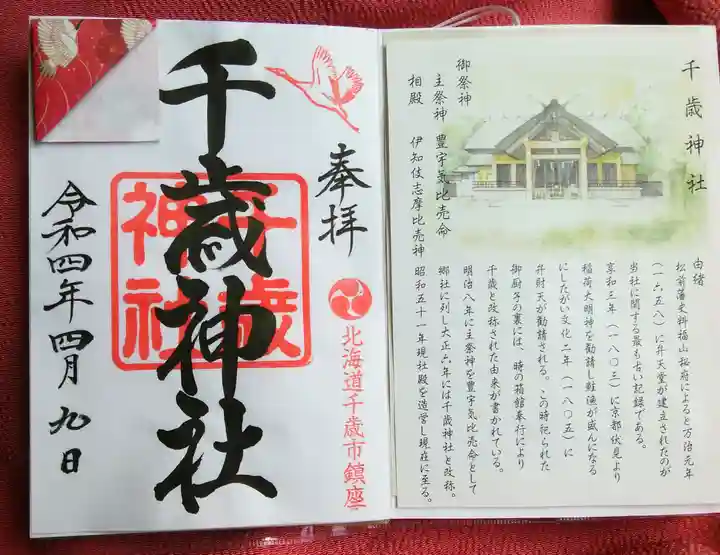 奉拝
北海道千歳市鎮座
千歳神社
千歳
神社
令和四年四月九日
千歳神社
御祭神
主祭神 豊宇気比売命
相殿 伊知伎志摩比売神
由緒
松前藩史料福山秘府によると万治元年
(一六五八)に弁天堂が建立されたのが
当社に関する最も古い記録である。
享和三年(一八〇三)に京都伏見より
稲荷大明神を勧請し鮭漁が盛んになる
にしたがい文化二年(一八〇五)に
弁財天が勧請される。この時祀られた
御厨子の裏には、時の箱館奉行により
千歳と改称された由来が書かれている。
明治八年に主祭神を豊宇気比売命として
郷社に列し大正六年には千歳神社と改称。
昭和五十一年現社殿を造営し現在に至る。